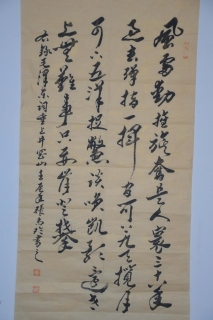 風雷動旌旗奮是人寰三十八年
過去弹指一揮间可上九天攬月
可下五洋捉鱉谈笑凯歌還世
上無難事只要肯登攀
右録毛澤東詞重上井岡山书之